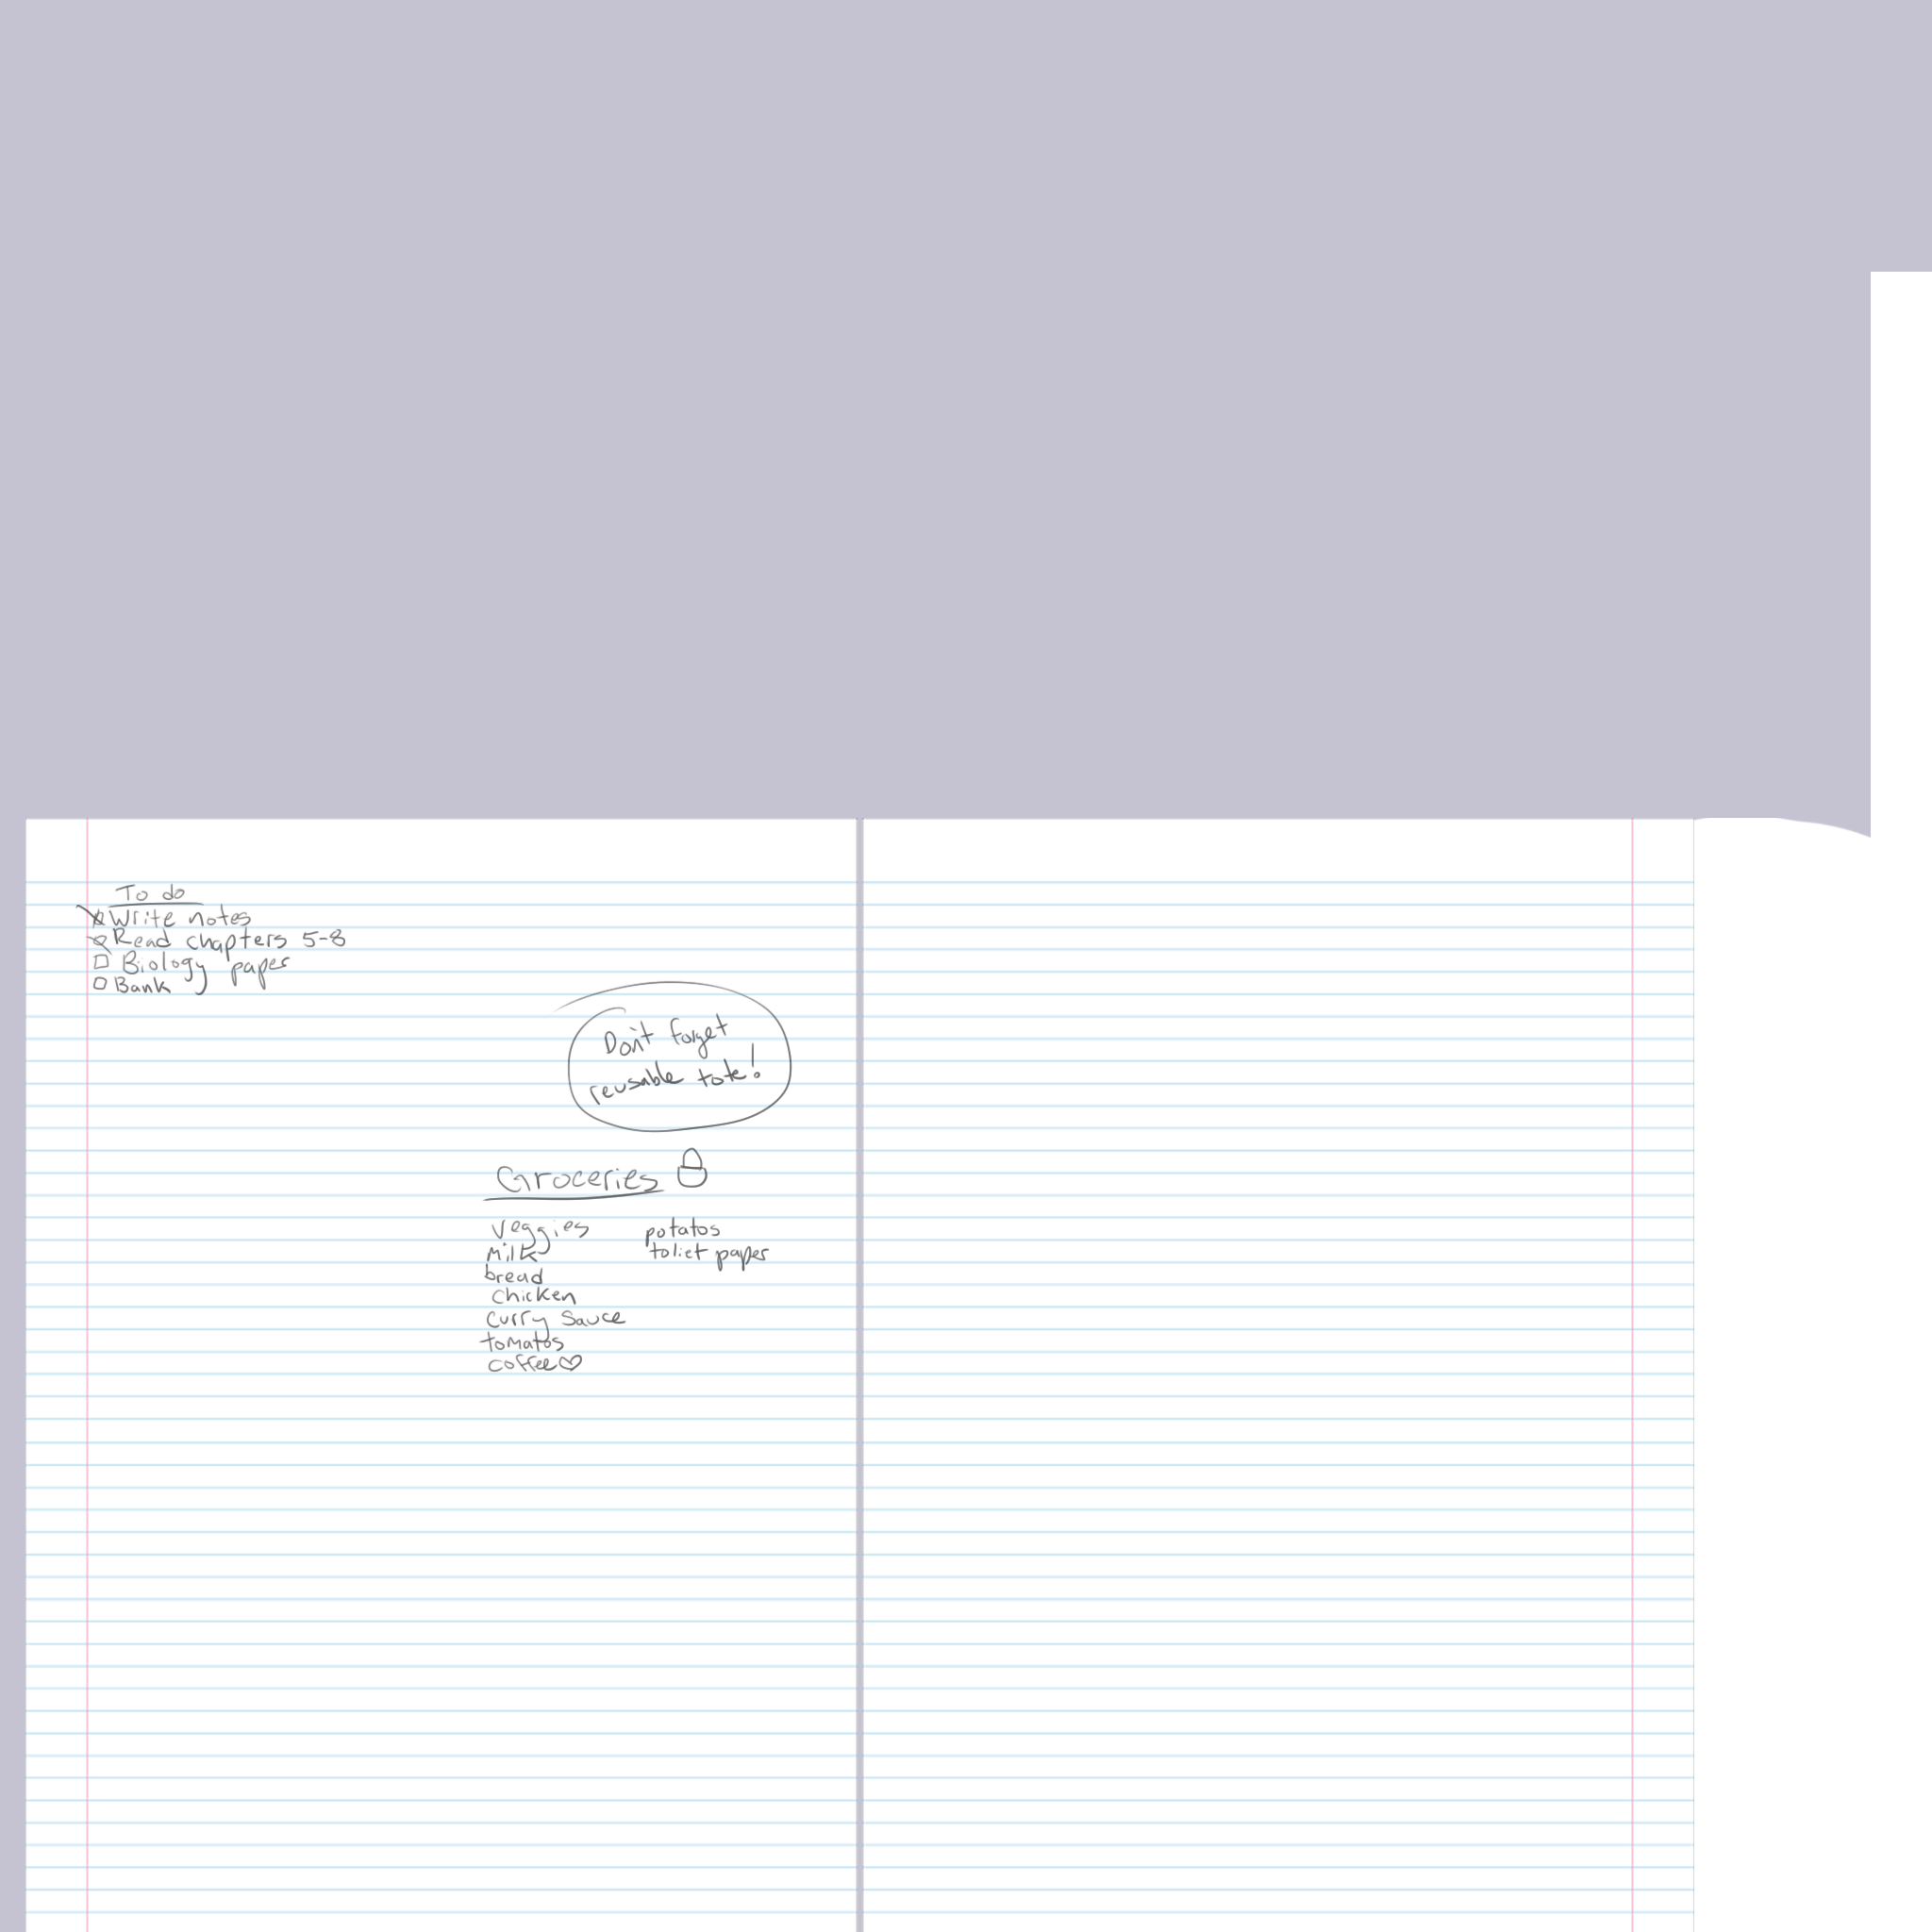 To do
Write notes
Read chapters 5-8
Biology paper
Bank
Don't forget
reusable tote!
Groceries
veggies
milk
bread
chicken
curry sauce
tomatos
coffee
potatos
toliet paper